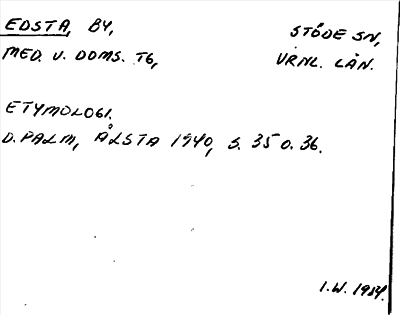 EDSTA, BY, STÖDE SN,
MED. V. DOMS. TG, VRNL. LÄN.
ETYMOLOGI.
D. PALM, ÅLSTA 1940, S. 35 O. 36.
I.W. 1934.